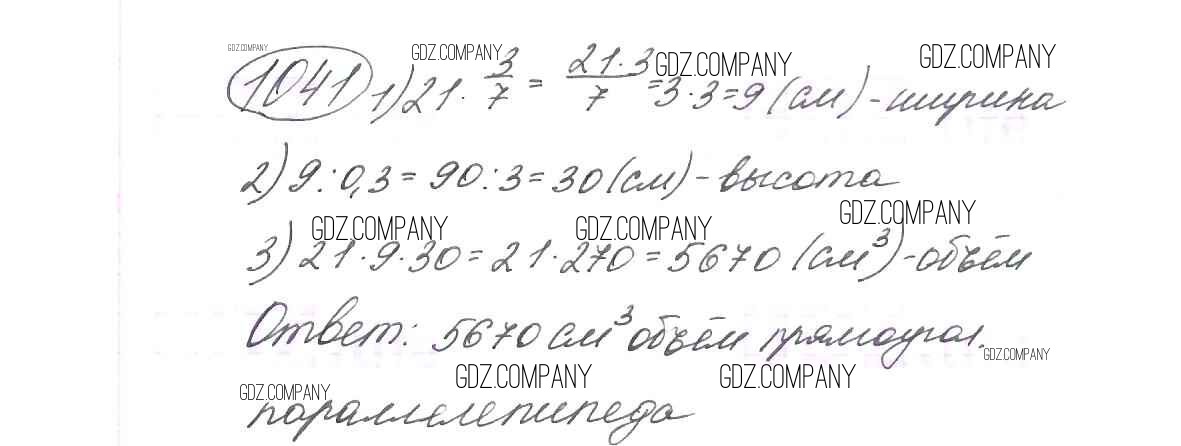 GDZ.COMPANY GDZ.COMPANY GDZ.COMPANY GDZ.COMPANY
1041 1) 21 · 3/7 = 21·3/7 = 3·3=9 (см) - ширина
2) 9 : 0,3 = 90 : 3 = 30 (см) - высота
GDZ.COMPANY GDZ.COMPANY GDZ.COMPANY
3) 21·9·30 = 21·270 = 5670 (см³) - объём
Ответ: 5670 см³ объём прямоугол.
GDZ.COMPANY
GDZ.COMPANY GDZ.COMPANY GDZ.COMPANY
параллелепипеда